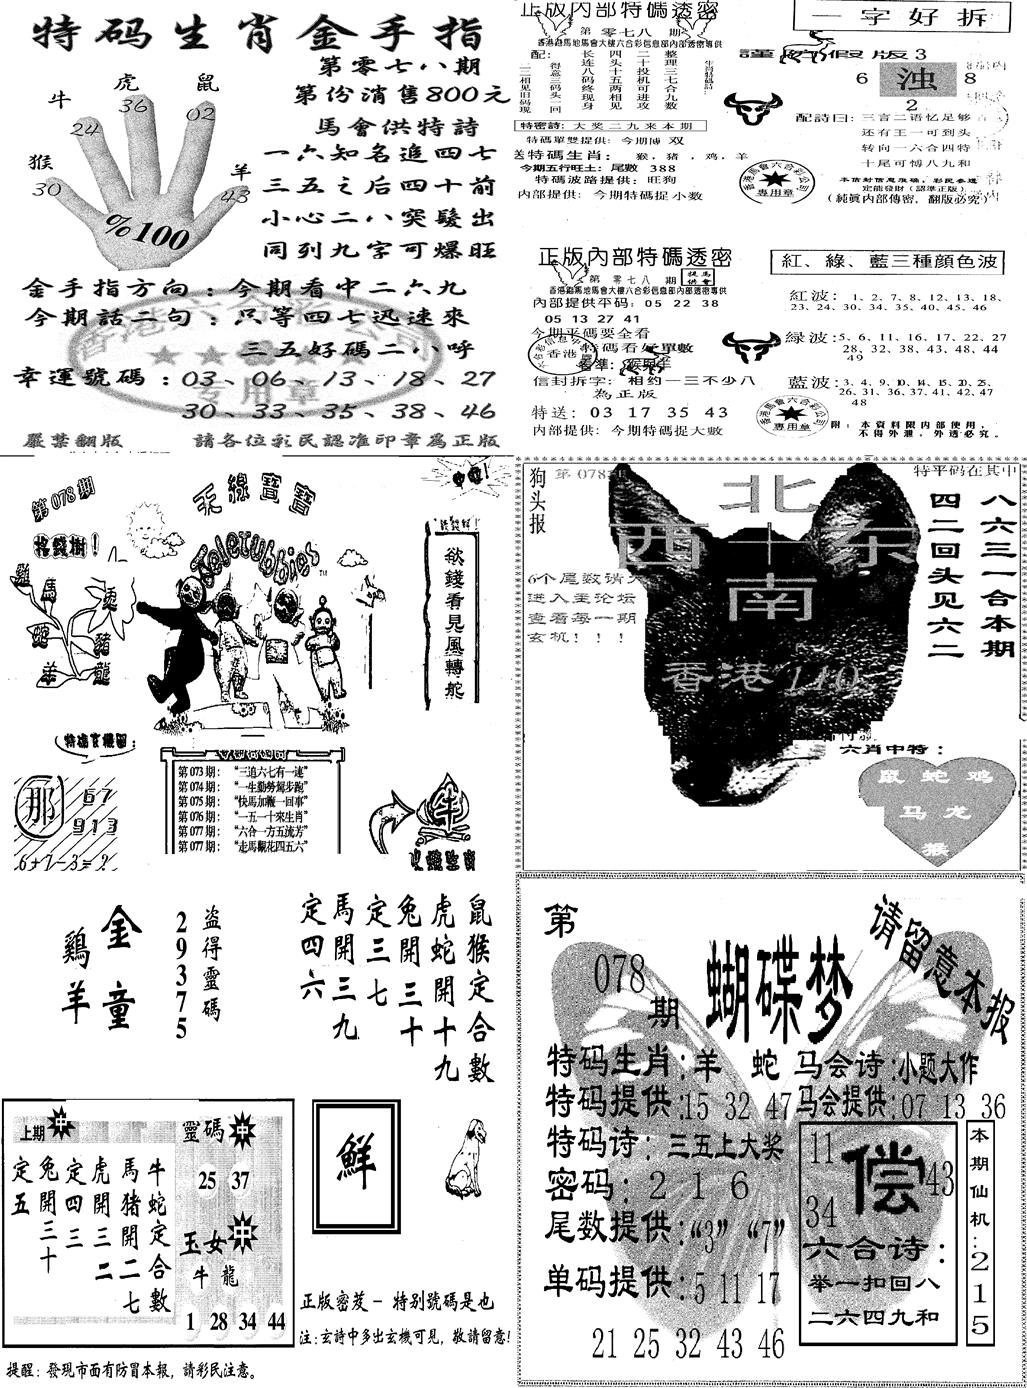 特码生肖金手指
第零七八期
第份消售800元
馬會供特詩
一六知名追四七
三五之后四十前
小心二八突髮出
同列九字可爆旺
牛 虎 鼠
24 36 02
猴 羊
30 43
%100
金手指方向：今期看中二六九
今期話二句：只等四七迅速來
三五好碼二八呼
幸運號碼：03、06、13、18、27
30、33、35、38、46
專用章
嚴禁翻版 請各位彩民認准印章為正版
正版内部特碼透密
第 零七八 期
香港跑馬地馬會大樓六合彩信息部内部透密專供
配：
整理三七合九数
二十投机可进攻
四头十五两相见
长连八码终现身
得意三码头一回
一三相见旧码现
特密詩：大奖二九来本期
特碼單雙提供：今期傅 双
送特碼生肖：猴，猪，鸡，羊
今期五行旺土：尾數 388
特碼波路提供：旺狗
内部提供：今期特碼捉小数
一字好拆
謹防假版3
6 浊 8
2
配詩曰：三言二语忆足够
还有王一可到头
转向一六合四特
十尾可愽八九和
本信封信息准确，彩民参透
定能發財（認準正版）
（純眞内部傳密，翻版必究）
專用章
正版内部特碼透密
第 零七八 期
馬會提供
香港跑馬地馬會大樓六合彩信息部内部透密專供
内部提供平码：05 22 38
05 13 27 41
今期平碼要全看
特碼看好單數
香港
信封拆字：相约一三不少八
為正版
特送：03 17 35 43
内部提供：今期特碼捉大數
紅、綠、藍三種顔色波
紅波：1、2、7、8、12、13、18、
23、24、30、34、35、40、45、46
緑波：5、6、11、16、17、22、27
28、32、38、43、48、44
49
藍波：3、4、9、10、14、15、20、25、
26、31、36、37、41、42、47
48
專用章
附：本資料限内部使用，
不得外泄，外透必究。
第078期
天線寶寶
搖錢樹！
Teletubbies
TM
雞 馬
猪
羊 龍
欲錢看見風轉舵
特碼玄機圖：
那 67
913
6+7-3=?
第073期：“三追六七有一連”
第074期：“一生動勞駕步跑”
第075期：“快馬加鞭一回事”
第076期：“一五一十來生肖”
第077期：“六合一方五流芳”
第077期：“走馬觀花四五六”
牛
狗头报
第078期
特平码在其中
北
西十东
南
八六三一合本期
四二回头见六二
6个尾数请大
进入主论坛
查看每一期
玄机！！！
香港110
六肖中特：
鼠 蛇 鸡
马 龙
猴
金童
鷄羊
盜得靈碼
29375
鼠猴定合數
虎蛇開十九
兔開三十
定三七
馬開三九
定四六
上期 中
牛蛇定合數
馬猪開二七
虎開三二
定四三
兔開三十
定五
靈碼 中
25 37
玉女 中
牛 龍
1 28 34 44
鮮
正版密笈－特别號碼是也
注：玄詩中多出玄機可見，敬請留意！
提醒：發現市面有防冒本報，請彩民注意。
第078期
蝴蝶梦
请留意本报
特码生肖：羊 蛇
马会诗：小题大作
特码提供：15 32 47
马会提供：07 13 36
特码诗：三五上大奖
密码：2 1 6
尾数提供：“3” “7”
单码提供：5 11 17
21 25 32 43 46
11 偿 43
34
六合诗：
举一扣回八
二六四九和
本期仙机：215